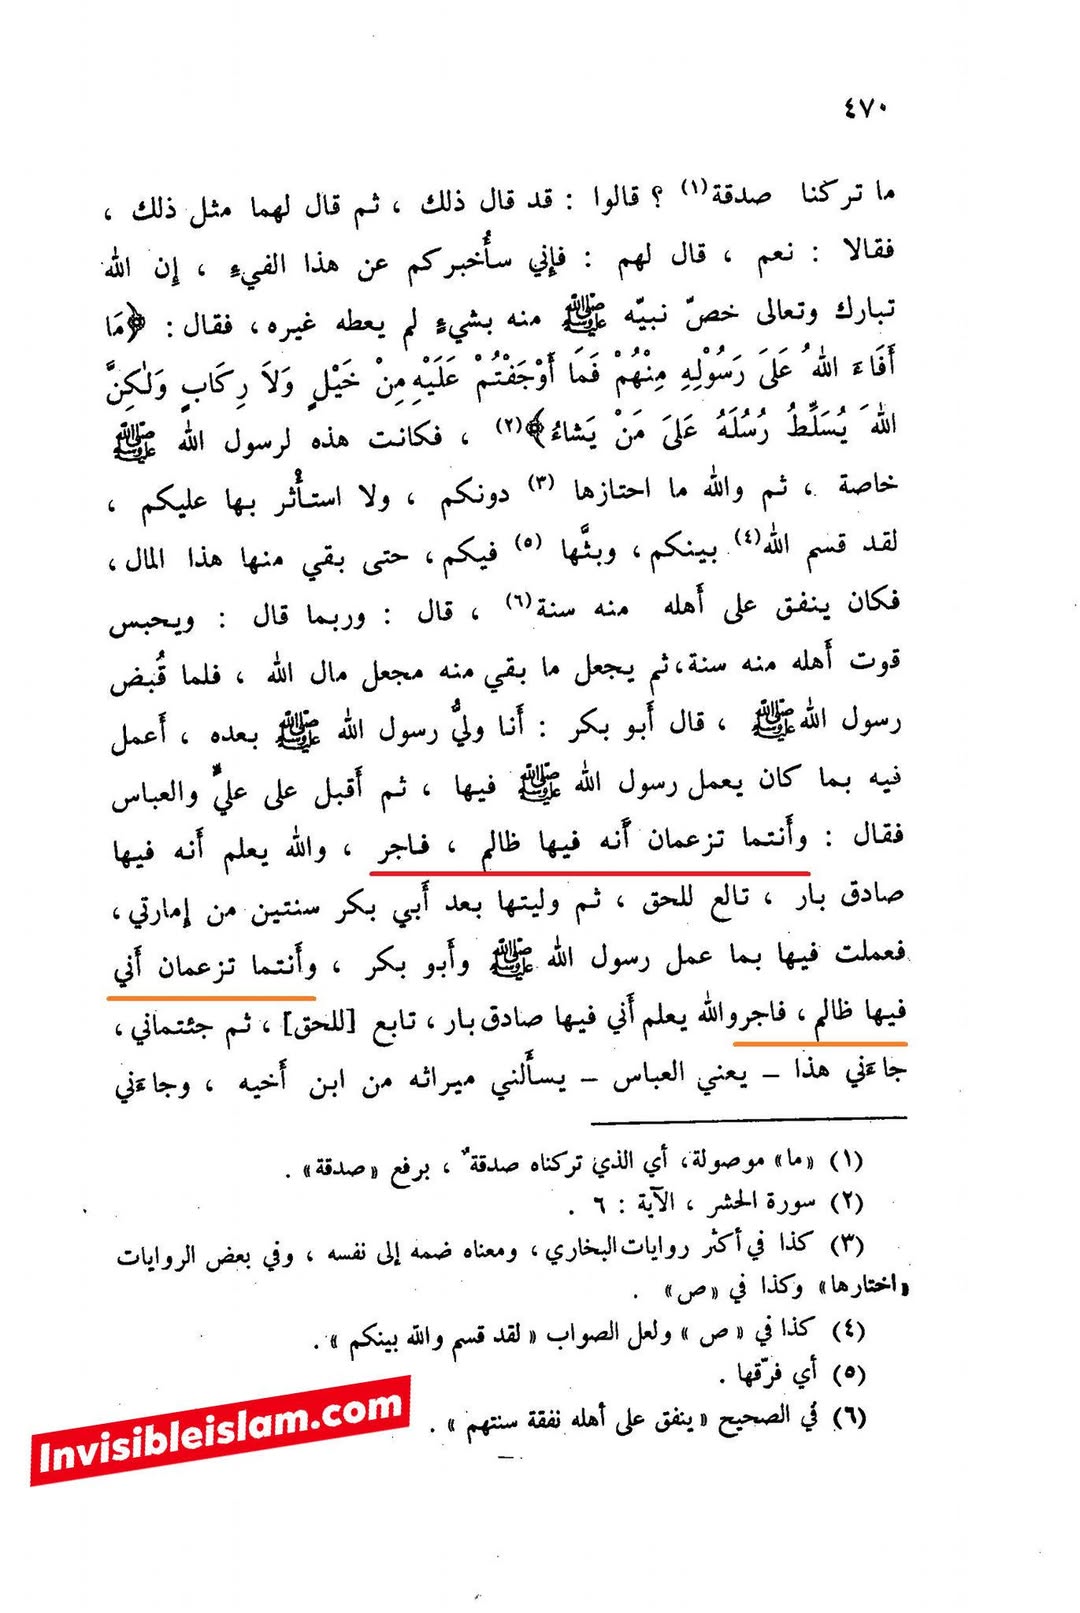 ٤٧٠
ما تركنا صدقة(١) ؟ قالوا : قد قال ذلك ، ثم قال لهما مثل ذلك ،
فقالا : نعم ، قال لهم : فإني سأُخبركم عن هذا الفيءِ ، إن الله
تبارك وتعالى خصّ نبيّه ﷺ منه بشيءٍ لم يعطه غيره، فقال : ﴿مَا
أَفَاءَ اللهُ عَلَىَ رَسُوْلِهِ مِنْهُمْ فَمَا أَوْجَفْتُمْ عَلَيْهِ مِنْ خَيْلٍ وَلاَ رِكَابٍ وَلٰكِنَّ
اللهَ يُسَلِّطُ رُسُلَهُ عَلىَ مَنْ يَشاءُ﴾(٢) ، فكانت هذه لرسول الله ﷺ
خاصة ، ثم والله ما احتازها (٣) دونكم ، ولا استأْثر بها عليكم ،
لقد قسم الله(٤) بينكم، وبثَّها (٥) فيكم، حتى بقي منها هذا المال،
فكان ينفق على أَهله منه سنة(٦) ، قال : وربما قال : ويحبس
قوت أَهله منه سنة، ثم يجعل ما بقي منه مجعل مال الله ، فلما قُبض
رسول الله ﷺ ، قال أَبو بكر : أَنا وليُّ رسول الله ﷺ بعده ، أَعمل
فيه بما كان يعمل رسول الله ﷺ فيها ، ثم أَقبل على عليٍّ والعباس
فقال : وأَنتما تزعمان أَنه فيها ظالم ، فاجر ، والله يعلم أنه فيها
صادق بار ، تالع للحق ، ثم وليتها بعد أَبي بكر سنتين من إمارتي،
فعملت فيها بما عمل رسول الله ﷺ وأَبو بكر ، وأَنتما تزعمان أَني
فيها ظالم، فاجروالله يعلم أَني فيها صادق بار، تابع [للحق]، ثم جئتماني،
جاءَني هذا – يعني العباس – يسأَلني ميراثه من ابن أَخيه ، وجاءَني
(١) «ما» موصولة، أي الذي تركناه صدقةٌ ، برفع «صدقة» .
(٢) سورة الحشر ، الآية : ٦ .
(٣) كذا في أكثر روايات البخاري، ومعناه ضمه إلى نفسه ، وفي بعض الروايات
«اختارها» وكذا في «ص» .
(٤) كذا في « ص » ولعل الصواب « لقد قسم والله بينكم » .
(٥) أي فرّقها .
(٦) في الصحيح « ينفق على أهله نفقة سنتهم » .
Invisibleislam.com